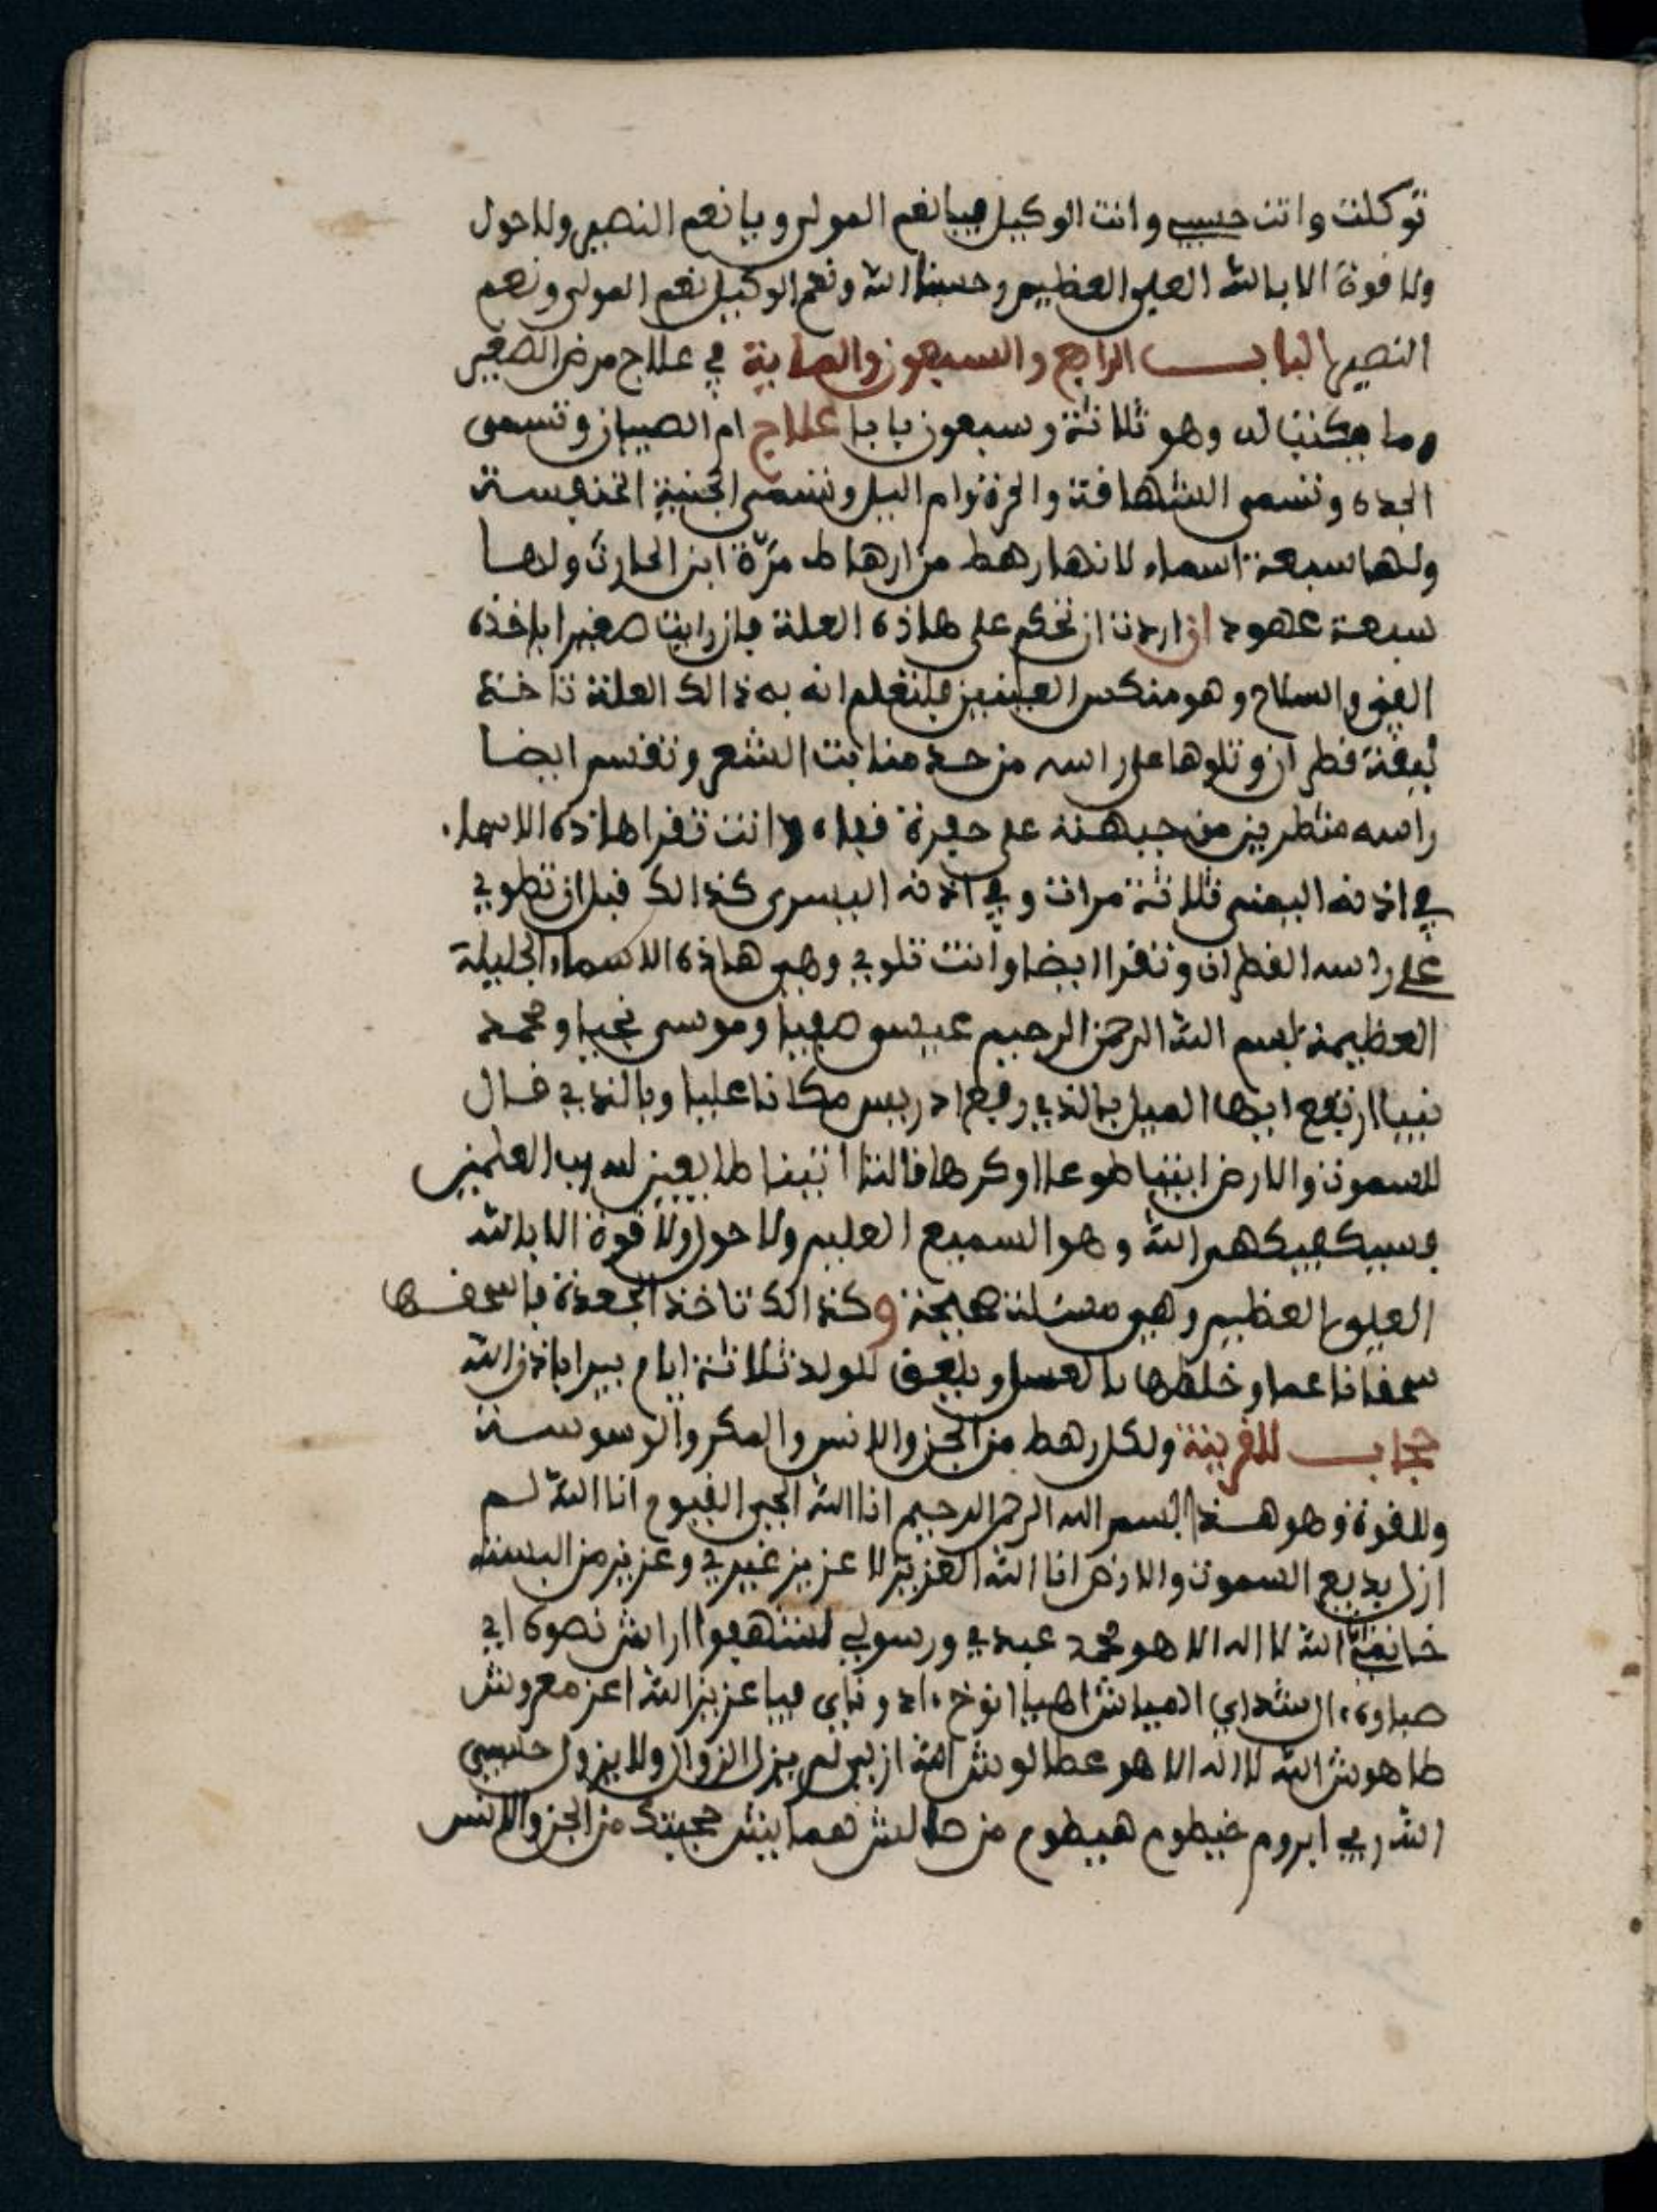 توكلت وانت حسبي وانت الوكيل فيا نعم المولى ويا نعم النصير ولا حول
ولا قوة الا بالله العلي العظيم وحسبنا الله ونعم الوكيل نعم المولى ونعم
النصير الباب الرابع والسبعون والماية في علاج مرض الصغير
وما يكتب له وهو ثلاثة وسبعون بابا علاج ام الصبيان وتسمى
الجدة وتسمى الشهافة والحرة وام اليل وتسمى الجنية الخنفسة
ولها سبعة اسماء لانها رهط من ارهاط مرة ابن الحارث ولها
سبعة عهود اذ اردت ان تحكم على هاذه العلة فان رايت صغيرا ياخذه
القيء والسلاح وهو منكس العينين فلتعلم انه به ذالك العلة تاخذ
ليقة قطران وتلوها على راسه من حد منابت الشعر وتقسم ايضا
راسه شطرين من جبهته على حفرة قفاه وانت تقرا هاذه الاسماء
في اذنه اليمنى ثلاثة مرات وفي اذنه اليسرى كذالك قبل ان تطوي
على راسه القطران وتقرا ايضا وانت تلوي وهي هاذه الاسماء الجليلة
العظيمة بسم الله الرحمن الرحيم عيسى صفيا وموسى نجيا ومحمد
نبيا ارتفع ايها الميل بالذي رفع ادريس مكانا عليا وبالذي قال
للسموت والارض ايتيا طوعا اوكرها قالتا اتينا طايعين لله رب العلمين
فسيكفيكهم الله وهو السميع العليم ولا حول ولا قوة الا بالله
العلي العظيم وهي مسئلة صحيحة وكذالك تاخذ الجعدة فاسحقها
سحقا ناعما وخلطها بالعسل ويلعق للولد ثلاثة ايام يبرا باذن الله
حجاب للقرينة ولكل رهط من الجن والانس والمكر والوسوسة
وللقوة وهو هذا بسم الله الرحمن الرحيم انا الله الحي القيوم انا الله لم
ازل بديع السموت والارض انا الله العزيز لا عزيز غيري وعزيز من البسته
الله لا اله الا هو محمد عبدي ورسولي
عزيز الله اعز
الله لا اله الا هو ازلي لم يزل الزوال ولا يزول حسبي
الله ربي حجبتك من الجن والانس